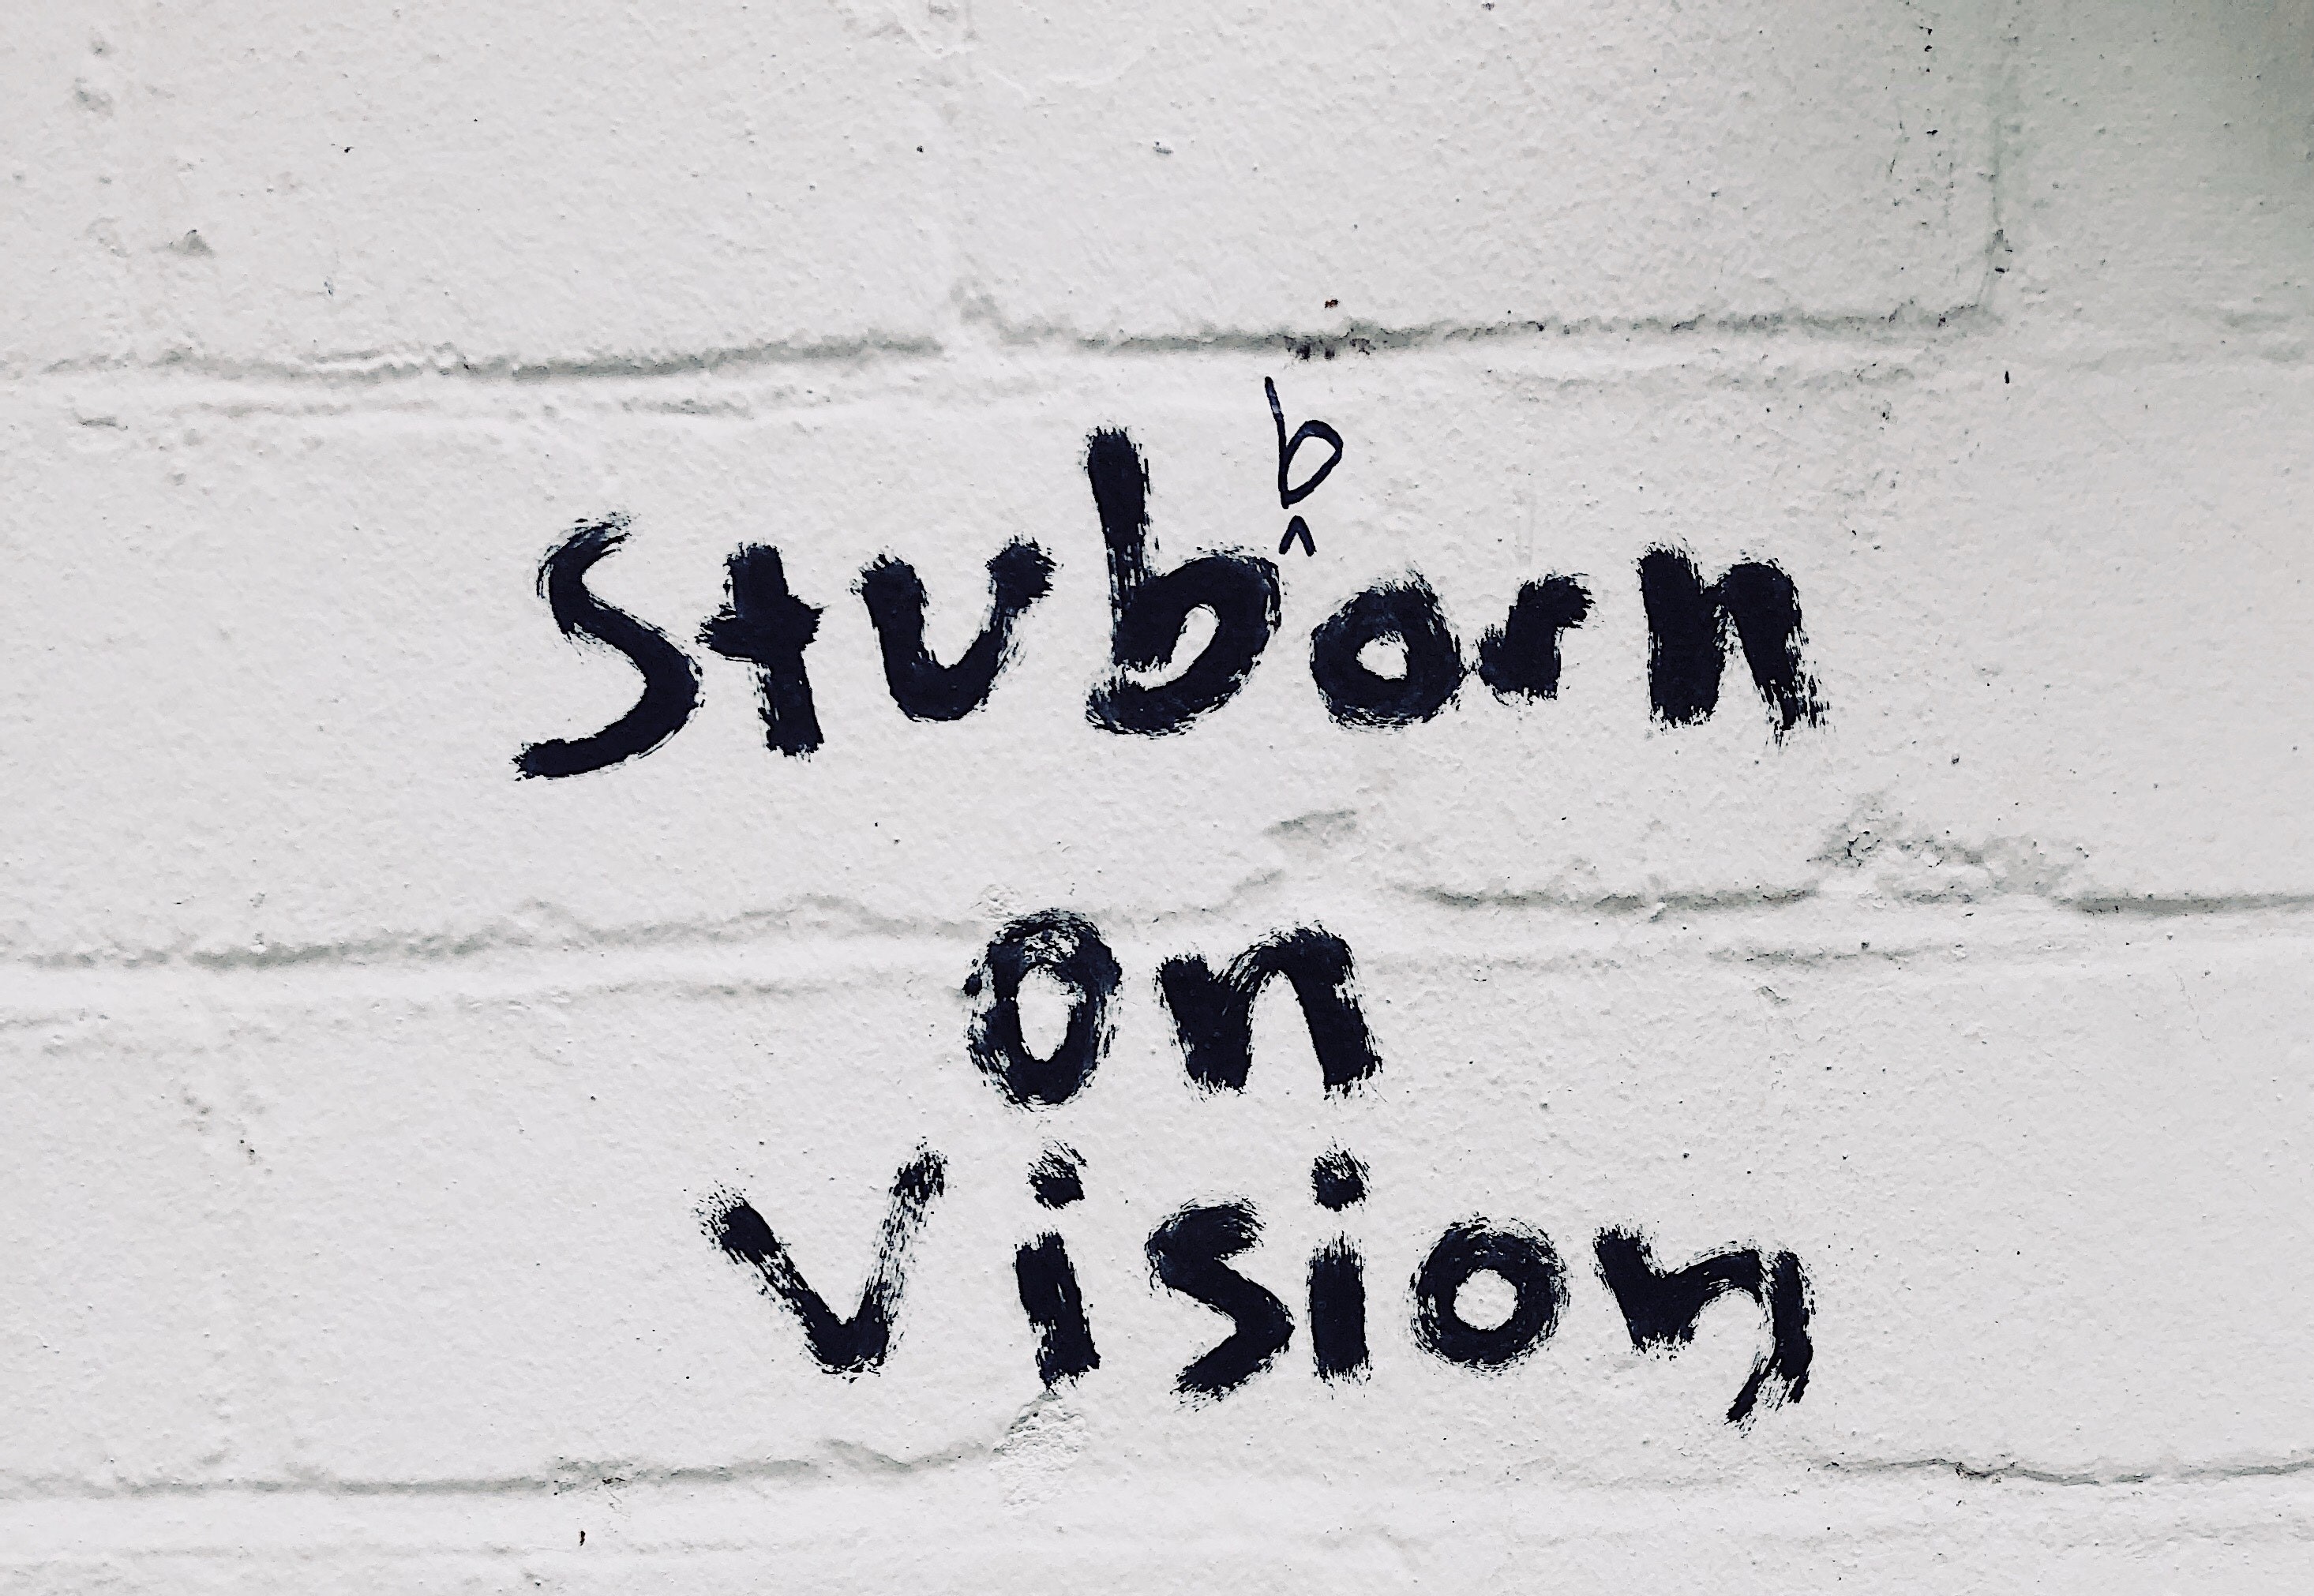 b
^
Stuborn
on
vision